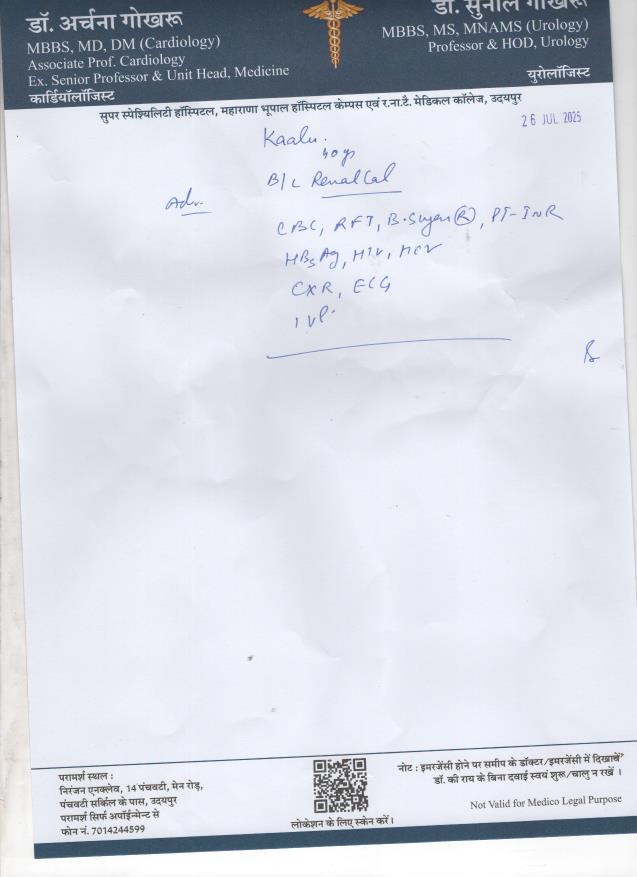 डॉ. अर्चना गोखरू
MBBS, MD, DM (Cardiology)
Associate Prof. Cardiology
Ex. Senior Professor & Unit Head, Medicine
कार्डियॉलॉजिस्ट
डॉ. सुनील गोखरू
MBBS, MS, MNAMS (Urology)
Professor & HOD, Urology
युरोलॉजिस्ट
सुपर स्पेश्यिलिटी हॉस्पिटल, महाराणा भूपाल हॉस्पिटल केम्पस एवं र.ना.टै. मेडिकल कॉलेज, उदयपुर
26 JUL 2025
Kaalu.
40 ys
B/L Renal Cal
Adv.
CBC, RFT, B.Sugar (R), PT-INR
HBsAg, HIV, HCV
CXR, ECG
IVP.
परामर्श स्थल :
निरंजन एनक्लेव, 14 पंचवटी, मेन रोड़,
पंचवटी सर्किल के पास, उदयपुर
परामर्श सिर्फ अपॉईन्मेन्ट से
फोन नं. 7014244599
लोकेशन के लिए स्केन करें।
नोट : इमरजेंसी होने पर समीप के डॉक्टर/इमरजेंसी में दिखावें
डॉ. की राय के बिना दवाई स्वयं शुरू/चालु न रखें ।
Not Valid for Medico Legal Purpose